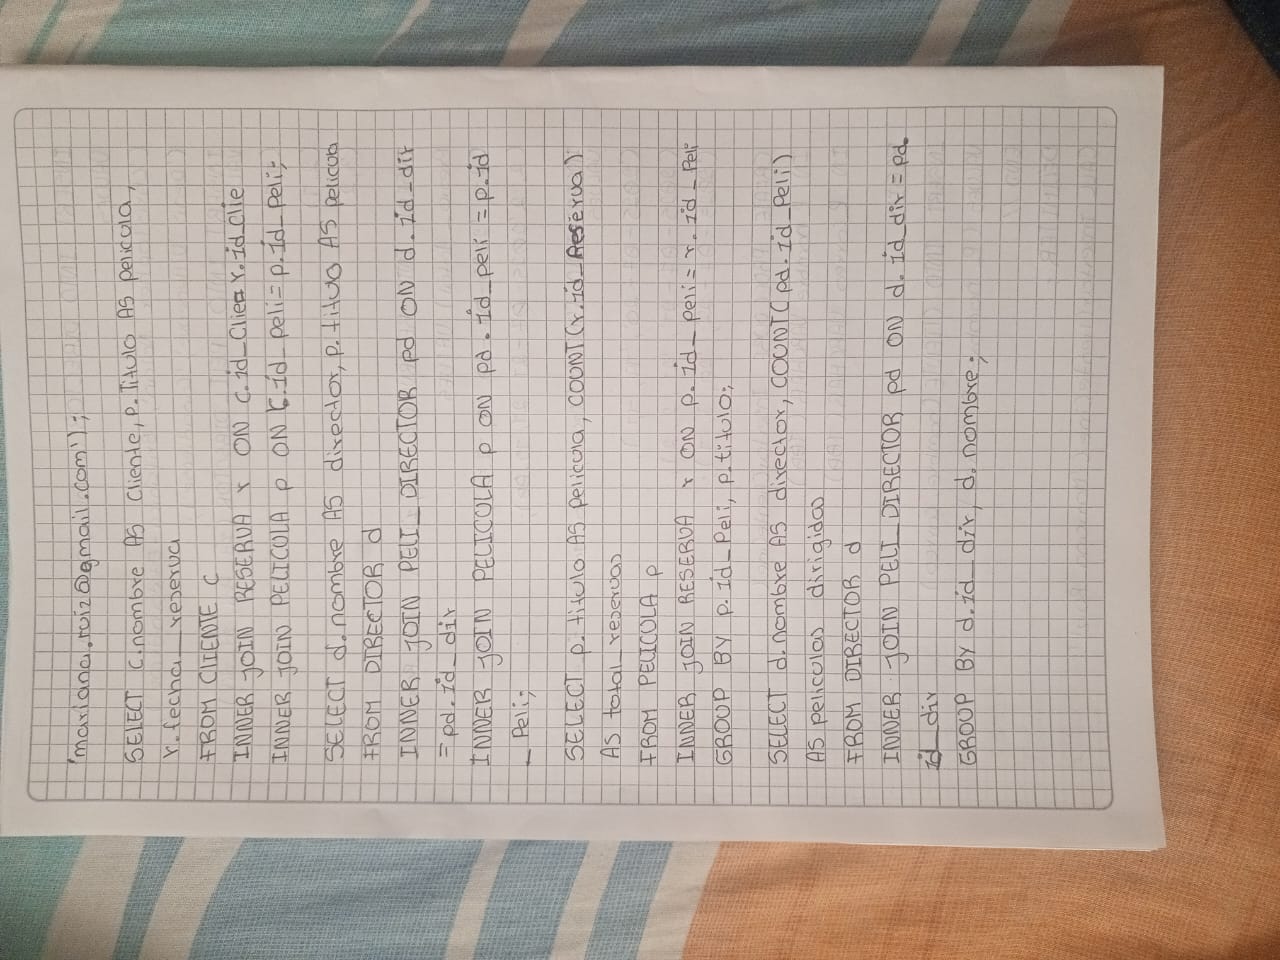 'mariana.ruiz@gmail.com');
SELECT c.nombre AS Cliente, p.Titulo AS pelicula,
r.fecha_reserva
FROM CLIENTE c
INNER JOIN RESERVA r ON c.id_Clie=r.id_Clie
INNER JOIN PELICULA p ON r.id_peli=p.id_peli;
SELECT d.nombre AS director, p.titulo AS pelicula
FROM DIRECTOR d
INNER JOIN PELI_DIRECTOR pd ON d.id_dir
= pd.id_dir
INNER JOIN PELICULA p ON pd.id_peli = p.id
_Peli;
SELECT p.titulo AS pelicula, COUNT(r.id_Reserva)
AS total_reservas
FROM PELICULA p
INNER JOIN RESERVA r ON p.id_peli = r.id_Peli
GROUP BY p.id_Peli, p.titulo;
SELECT d.nombre AS director, COUNT(pd.id_Peli)
AS peliculas dirigidas
FROM DIRECTOR d
INNER JOIN PELI_DIRECTOR pd ON d.id_dir = pd.
id_dir
GROUP BY d.id_dir, d.nombre;